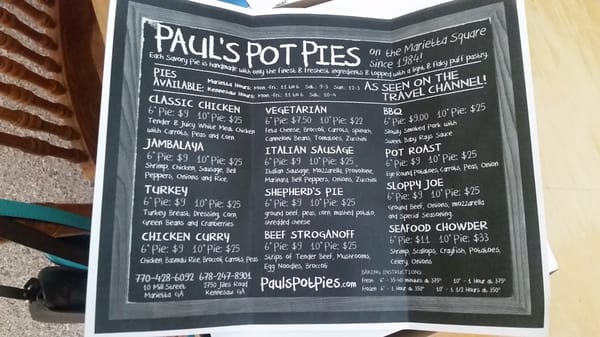 PAUL'S POT PIES
on the Marietta Square
Since 1984!
Each Savory Pie is handmade with only the finest & freshest ingredients & topped with a light & flaky puff pastry.
PIES
AVAILABLE:
Marietta Hours: Mon.-fri.: 11 to 6 Sat.: 9-3 Sun.: 12-3
Kennesaw Hours: Mon.-fri.: 11 to 6 Sat.: 10-4
AS SEEN ON THE
TRAVEL CHANNEL!
CLASSIC CHICKEN
6" Pie: $9 10" Pie: $25
Tender & Juicy White Meat Chicken
with Carrots, Peas and Corn
JAMBALAYA
6" Pie: $9 10" Pie: $25
Shrimp, Chicken, Sausage, Bell
Peppers, Onions and Rice.
TURKEY
6" Pie: $9 10" Pie: $25
Turkey Breast, Dressing, Corn,
Green Beans and Cranberries
CHICKEN CURRY
6" Pie: $9 10" Pie: $25
Chicken, Basmati Rice, Broccoli, Carrots, Peas
770-428-6092
10 Mill Street
Marietta GA
678-247-8901
2750 Jiles Road
Kennesaw GA
VEGETARIAN
6" Pie: $7.50 10" Pie: $22
Feta Cheese, Broccoli, Carrots, spinach,
Cannellini Beans, Tomatoes, Zucchini
ITALIAN SAUSAGE
6" Pie: $9 10" Pie: $25
Italian Sausage, Mozzarella, Provolone,
Marinara, Bell Peppers, Onions, Zucchini
SHEPHERD'S PIE
6" Pie: $9 10" Pie: $25
ground beef, peas, corn, mashed potato,
shredded cheese
BEEF STROGANOFF
6" Pie: $9 10" Pie: $25
Strips of Tender Beef, Mushrooms,
Egg Noodles, Broccoli
PaulsPotPies.com
BBQ
6" Pie: $9.00 10" Pie: $25
Slowly Smoked Pork with
Sweet Baby Rajo Sauce
POT ROAST
6" Pie: $9 10" Pie: $25
Eye Round Potatoes, Carrots, Peas, Onion
SLOPPY JOE
6" Pie: $9 10" Pie: $25
Ground beef, Onions, mozzarella
and Special Seasoning.
SEAFOOD CHOWDER
6" Pie: $11 10" Pie: $33
Shrimp, Scallops, Crayfish, Potatoes,
Celery, Onions
BAKING INSTRUCTIONS:
Fresh 6" - 35-40 minutes @ 375° 10" - 1 Hour @ 375°
Frozen 6" - 1 Hour @ 350° 10" - 1 1/2 Hours @ 350°